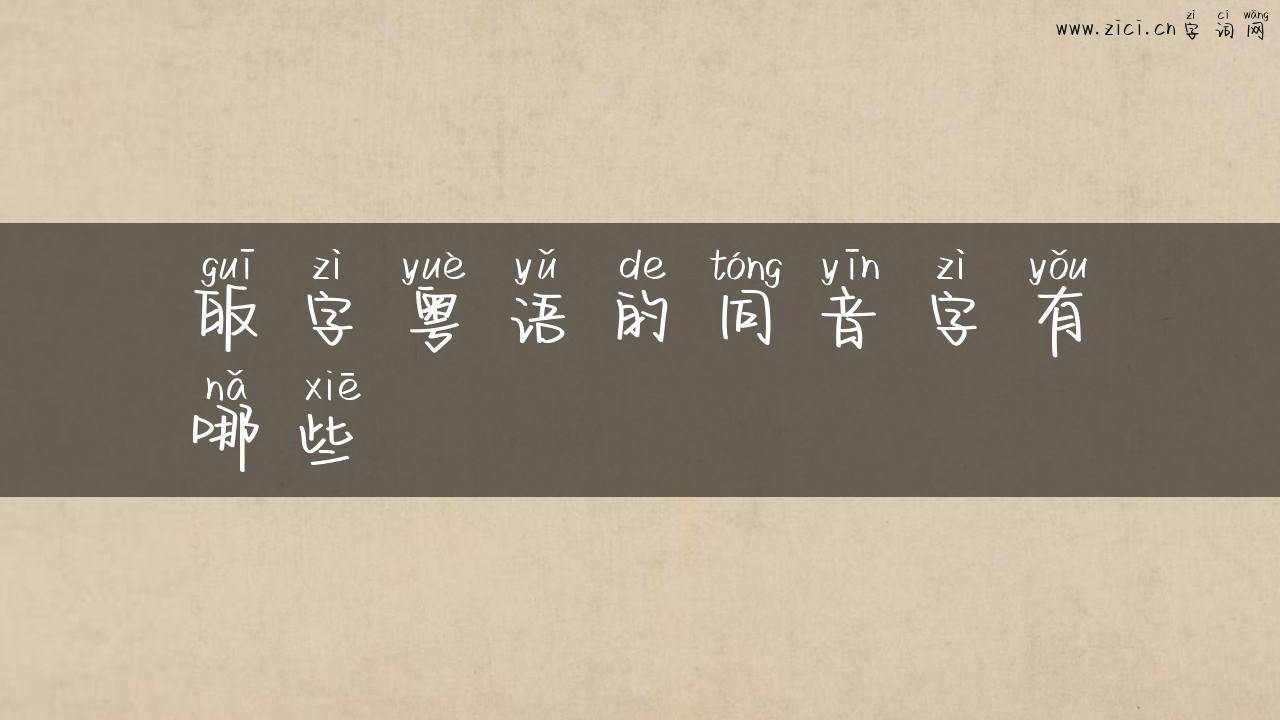 zì cí wǎng
www.zici.cn 字词网
guī zì yuè yǔ de tóng yīn zì yǒu
字粤语的同音字有
nǎ xiē
哪些